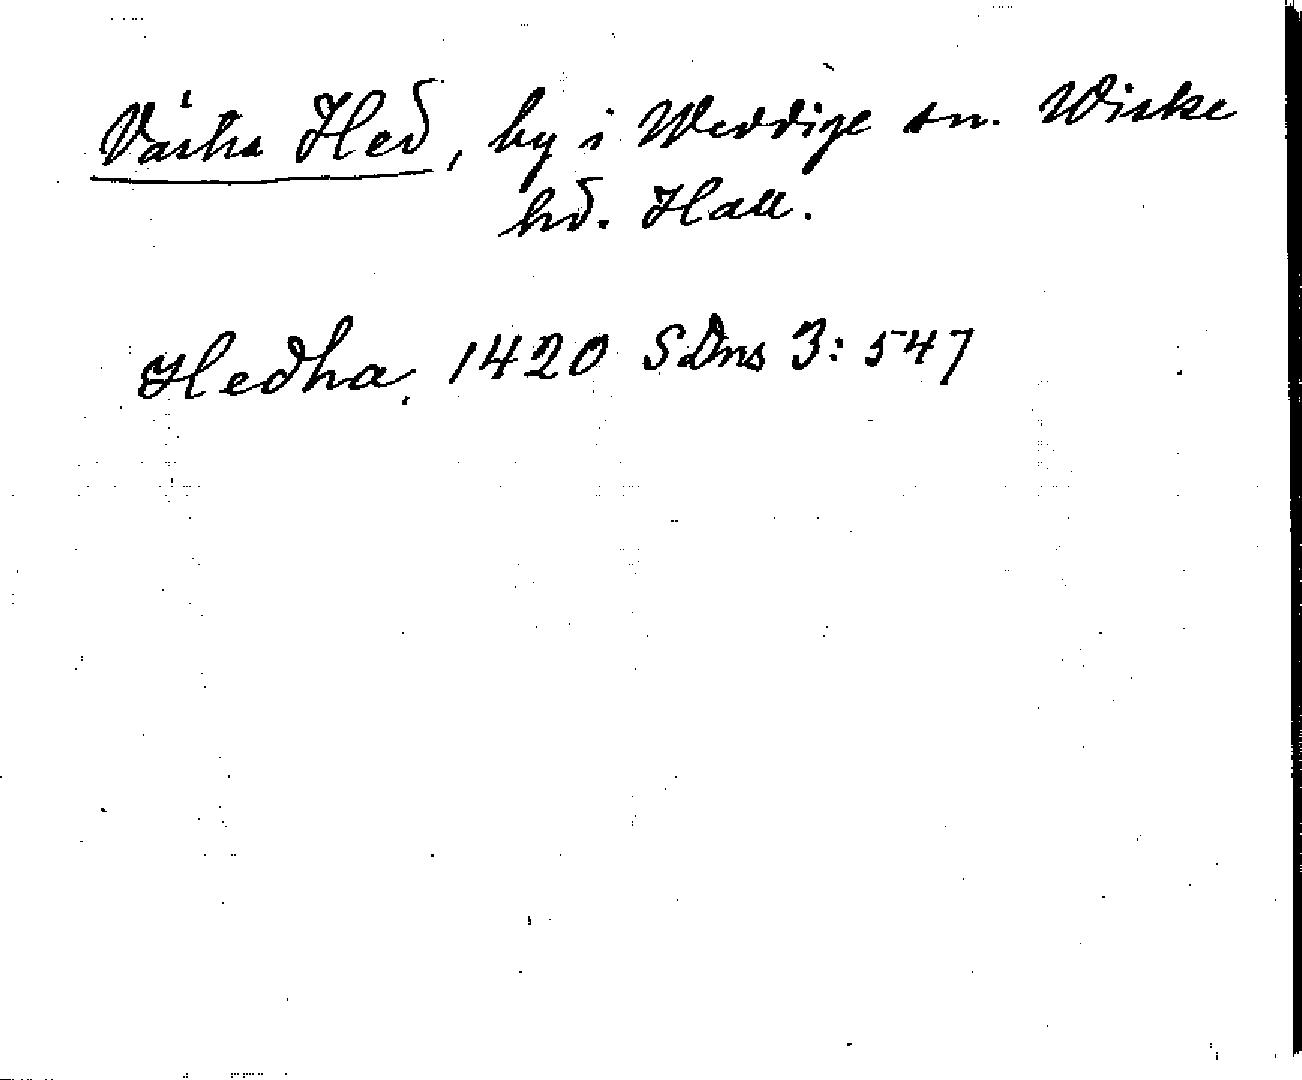 Västra Hed, by i Weddige sn. Wiske
hd. Hall.
Hedha, 1420 SDns 3: 547